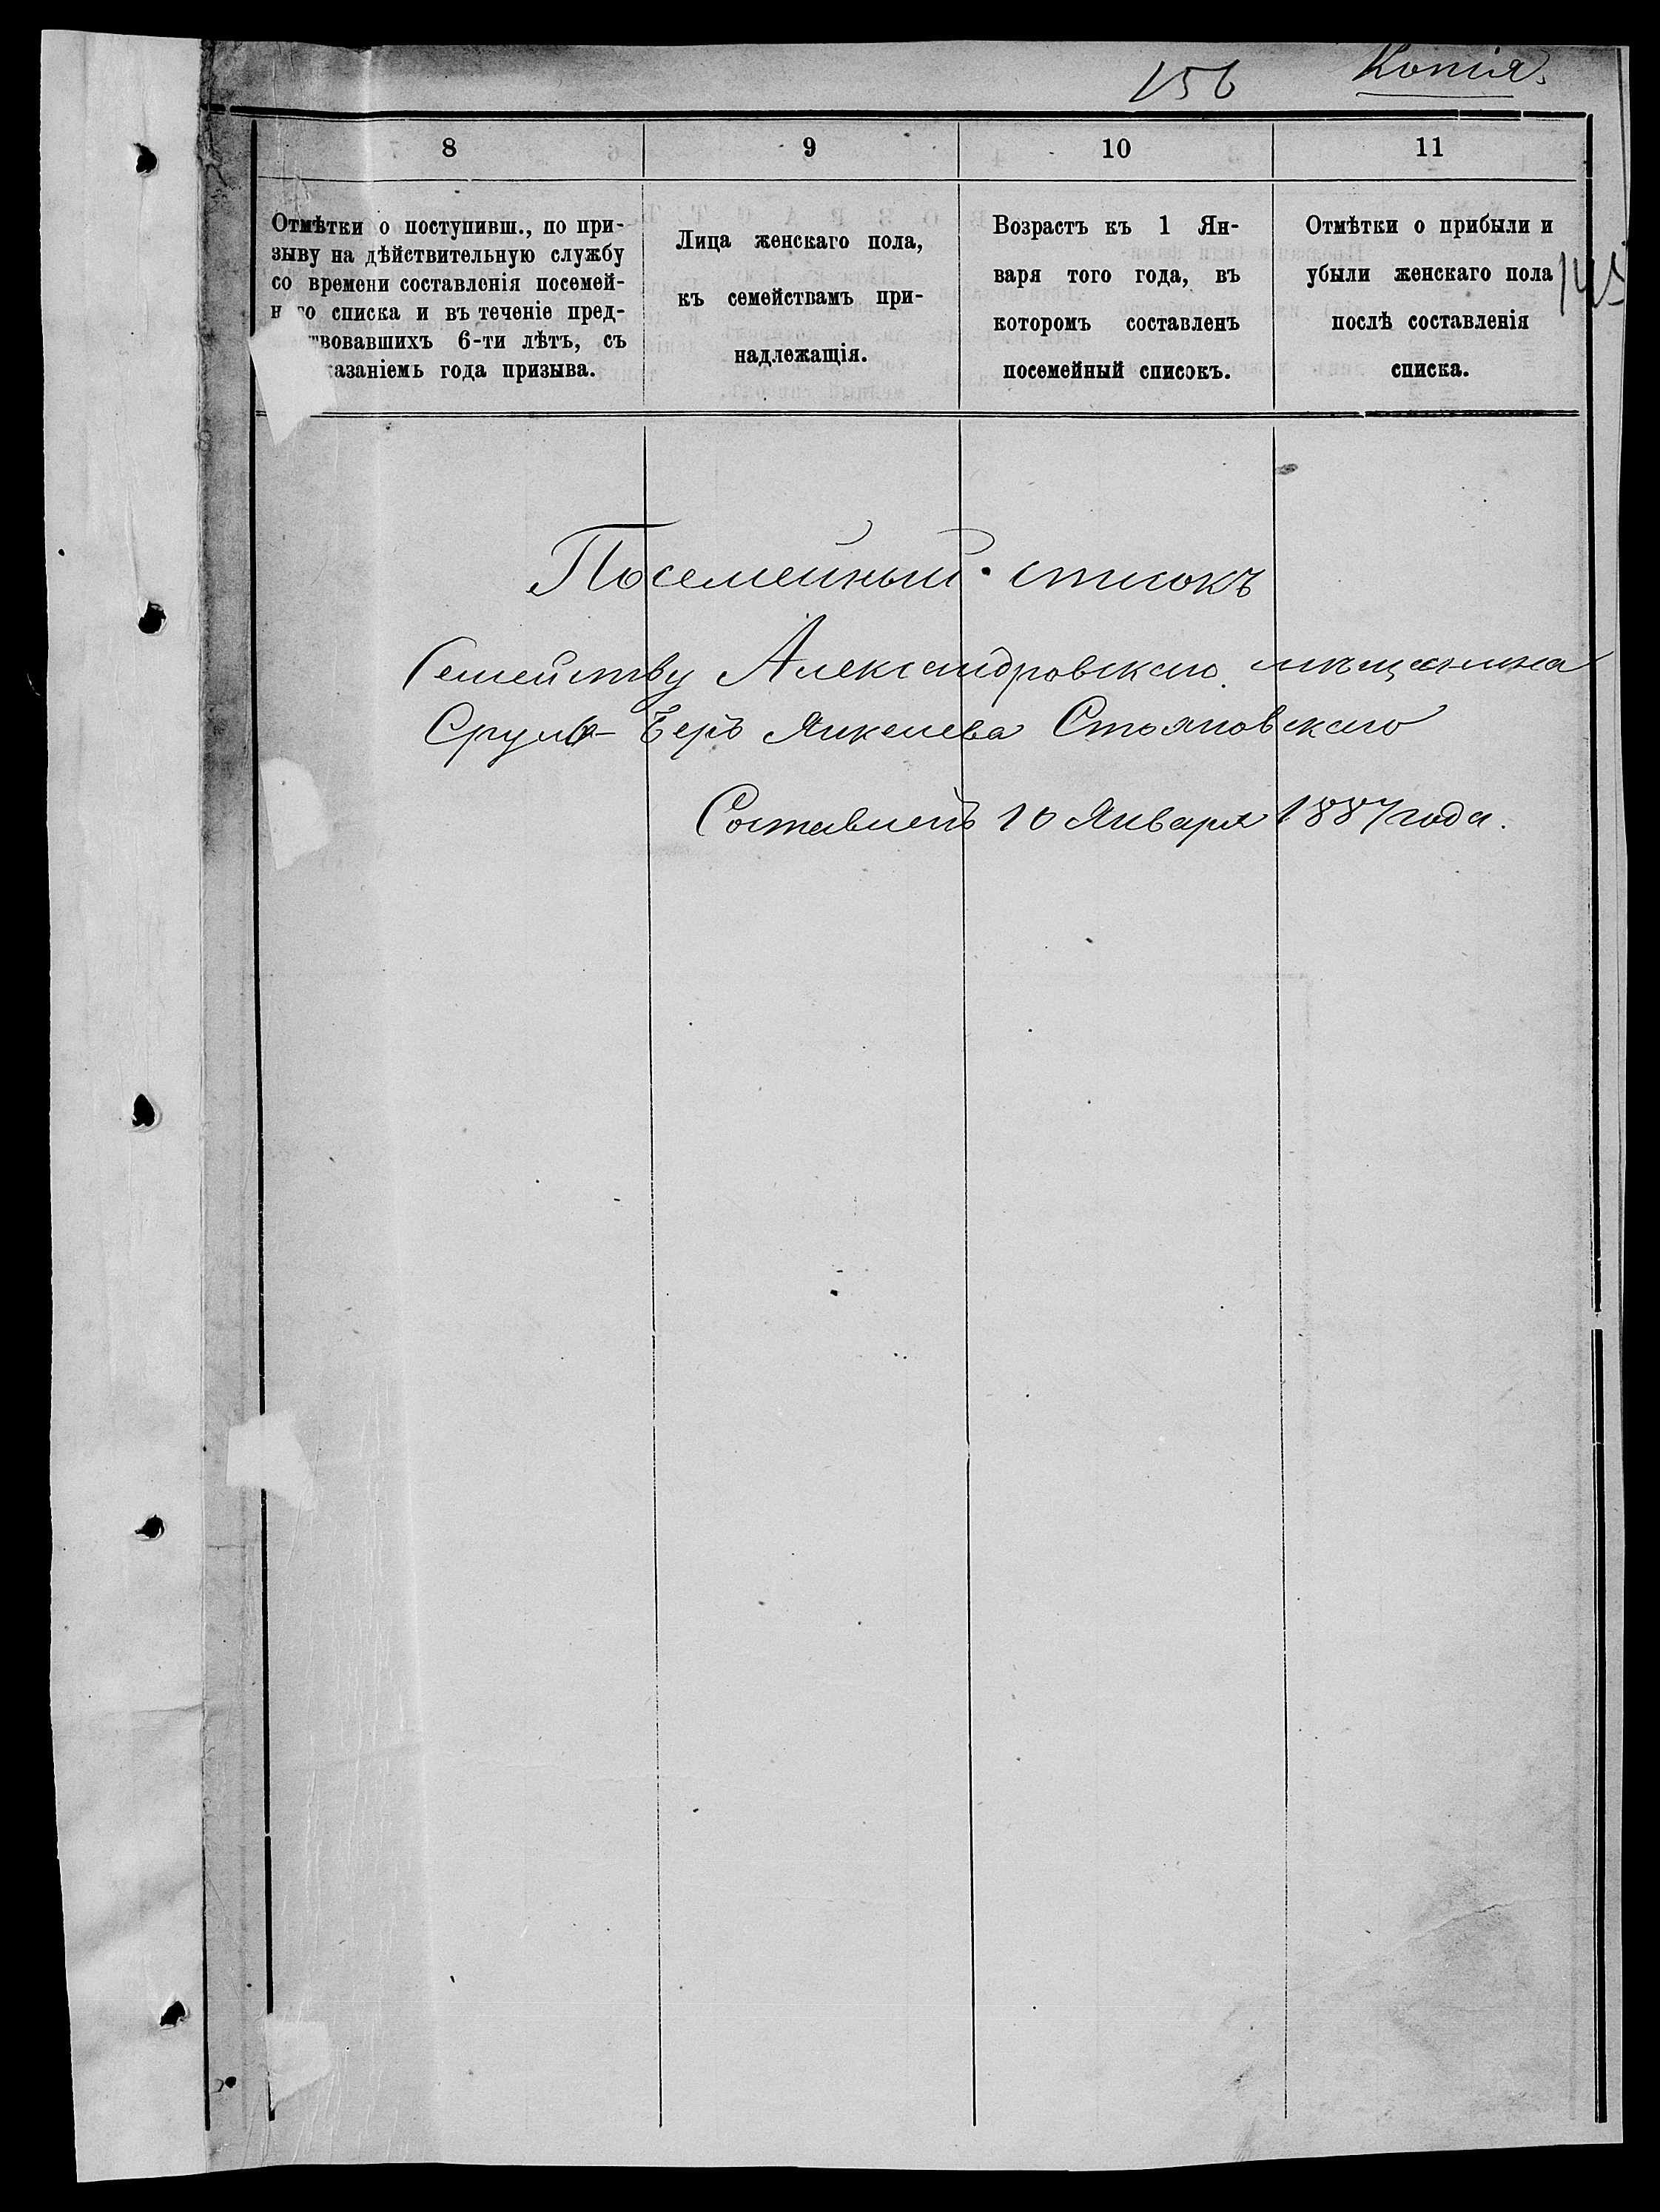 156
Копія.
8
9
10
11
Отмѣтки о поступивш., по при-
зыву на дѣйствительную службу
со времени составленія посемей-
списка и въ теченіе пред-
твовавшихъ 6-ти лѣтъ, съ
азаніемъ года призыва.
Лица женскаго пола,
къ семействамъ при-
надлежащія.
Возрастъ къ 1 Ян-
варя того года, въ
которомъ составленъ
посемейный списокъ.
Отмѣтки о прибыли и
убыли женскаго пола
послѣ составленія
списка.
Посемейный списокъ
Семейству Александровскаго мѣщанина
Сруля-Беръ Янкелева Стояновскаго
Составленъ 10 Января 1887 года.